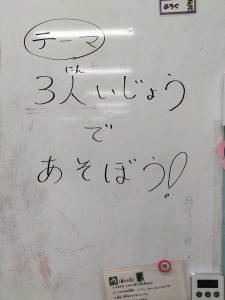 テーマ
にん
3人いじょう
で
あそぼう!